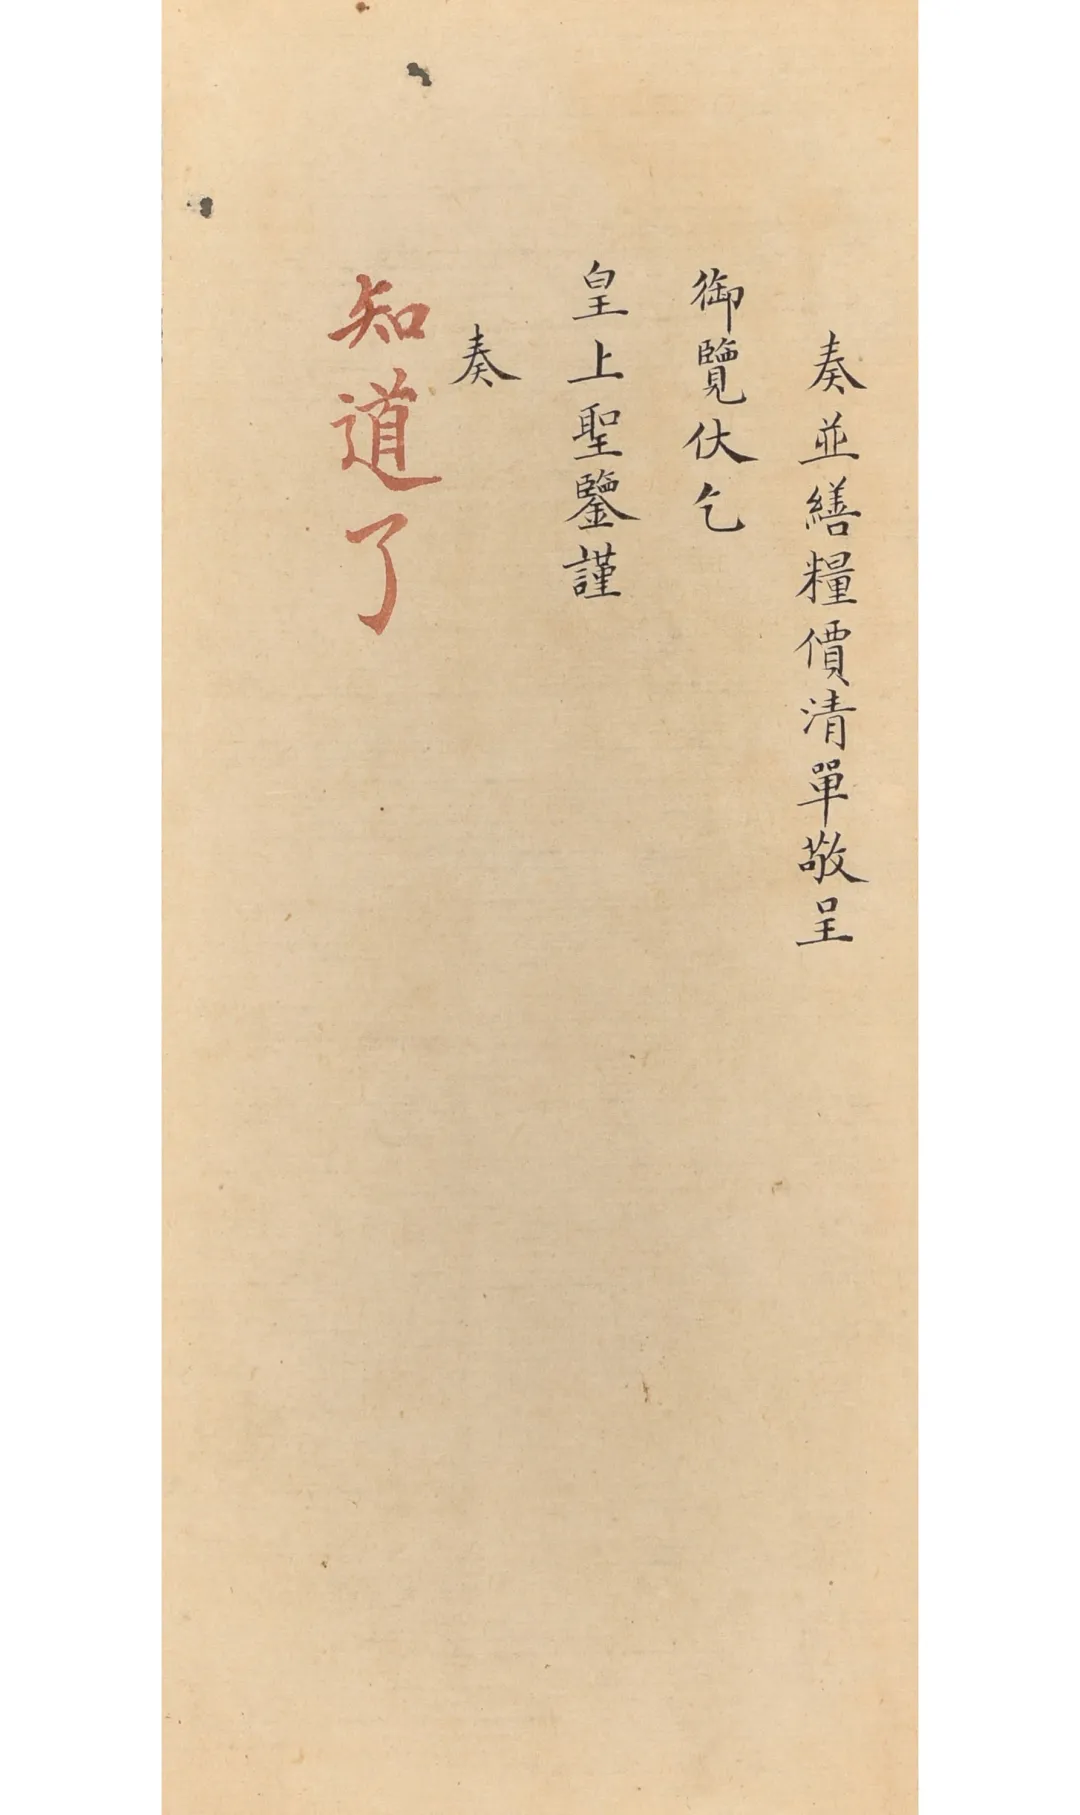 奏並繕糧價清單敬呈
御覽伏乞
皇上聖鑒謹
奏
知道了